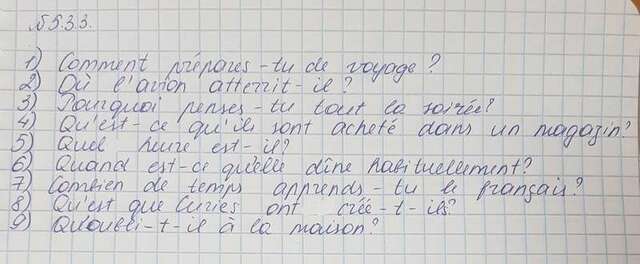 №5.3.3.
1) Comment prépares-tu de voyage?
2) Où l'avion atterrit-il?
3) Pourquoi penses-tu tout la soirée?
4) Qu'est-ce qu'ils sont acheté dans un magazin?
5) Quel heure est-il?
6) Quand est-ce qu'elle dîne habituellement?
7) Combien de temps apprends-tu le français?
8) Qu'est que Curies ont crée-t-ils?
9) Qu'oubli-t-il à la maison?